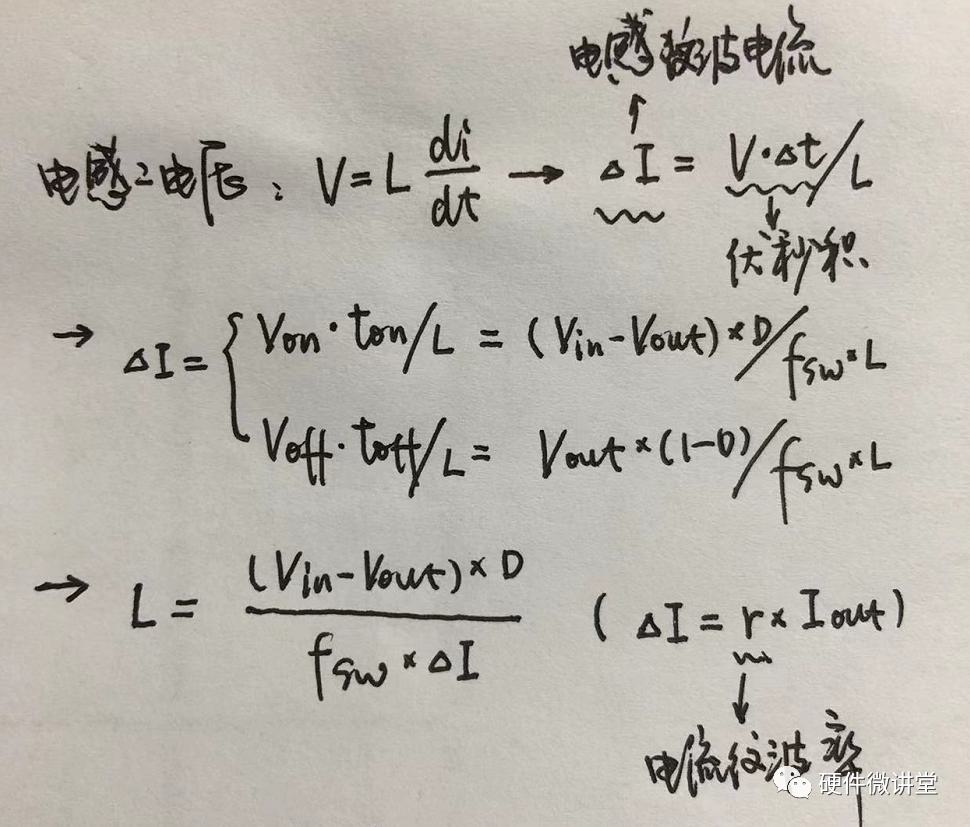 电感纹波电流
电感之电压: V = L di/dt → ΔI = V·Δt/L
伏秒积
→ ΔI = { Von·ton/L = (Vin-Vout)×D/fsw×L
Voff·toff/L = Vout×(1-D)/fsw×L
→ L = (Vin-Vout)×D / fsw×ΔI (ΔI = r×Iout)
电流纹波率
硬件微讲堂